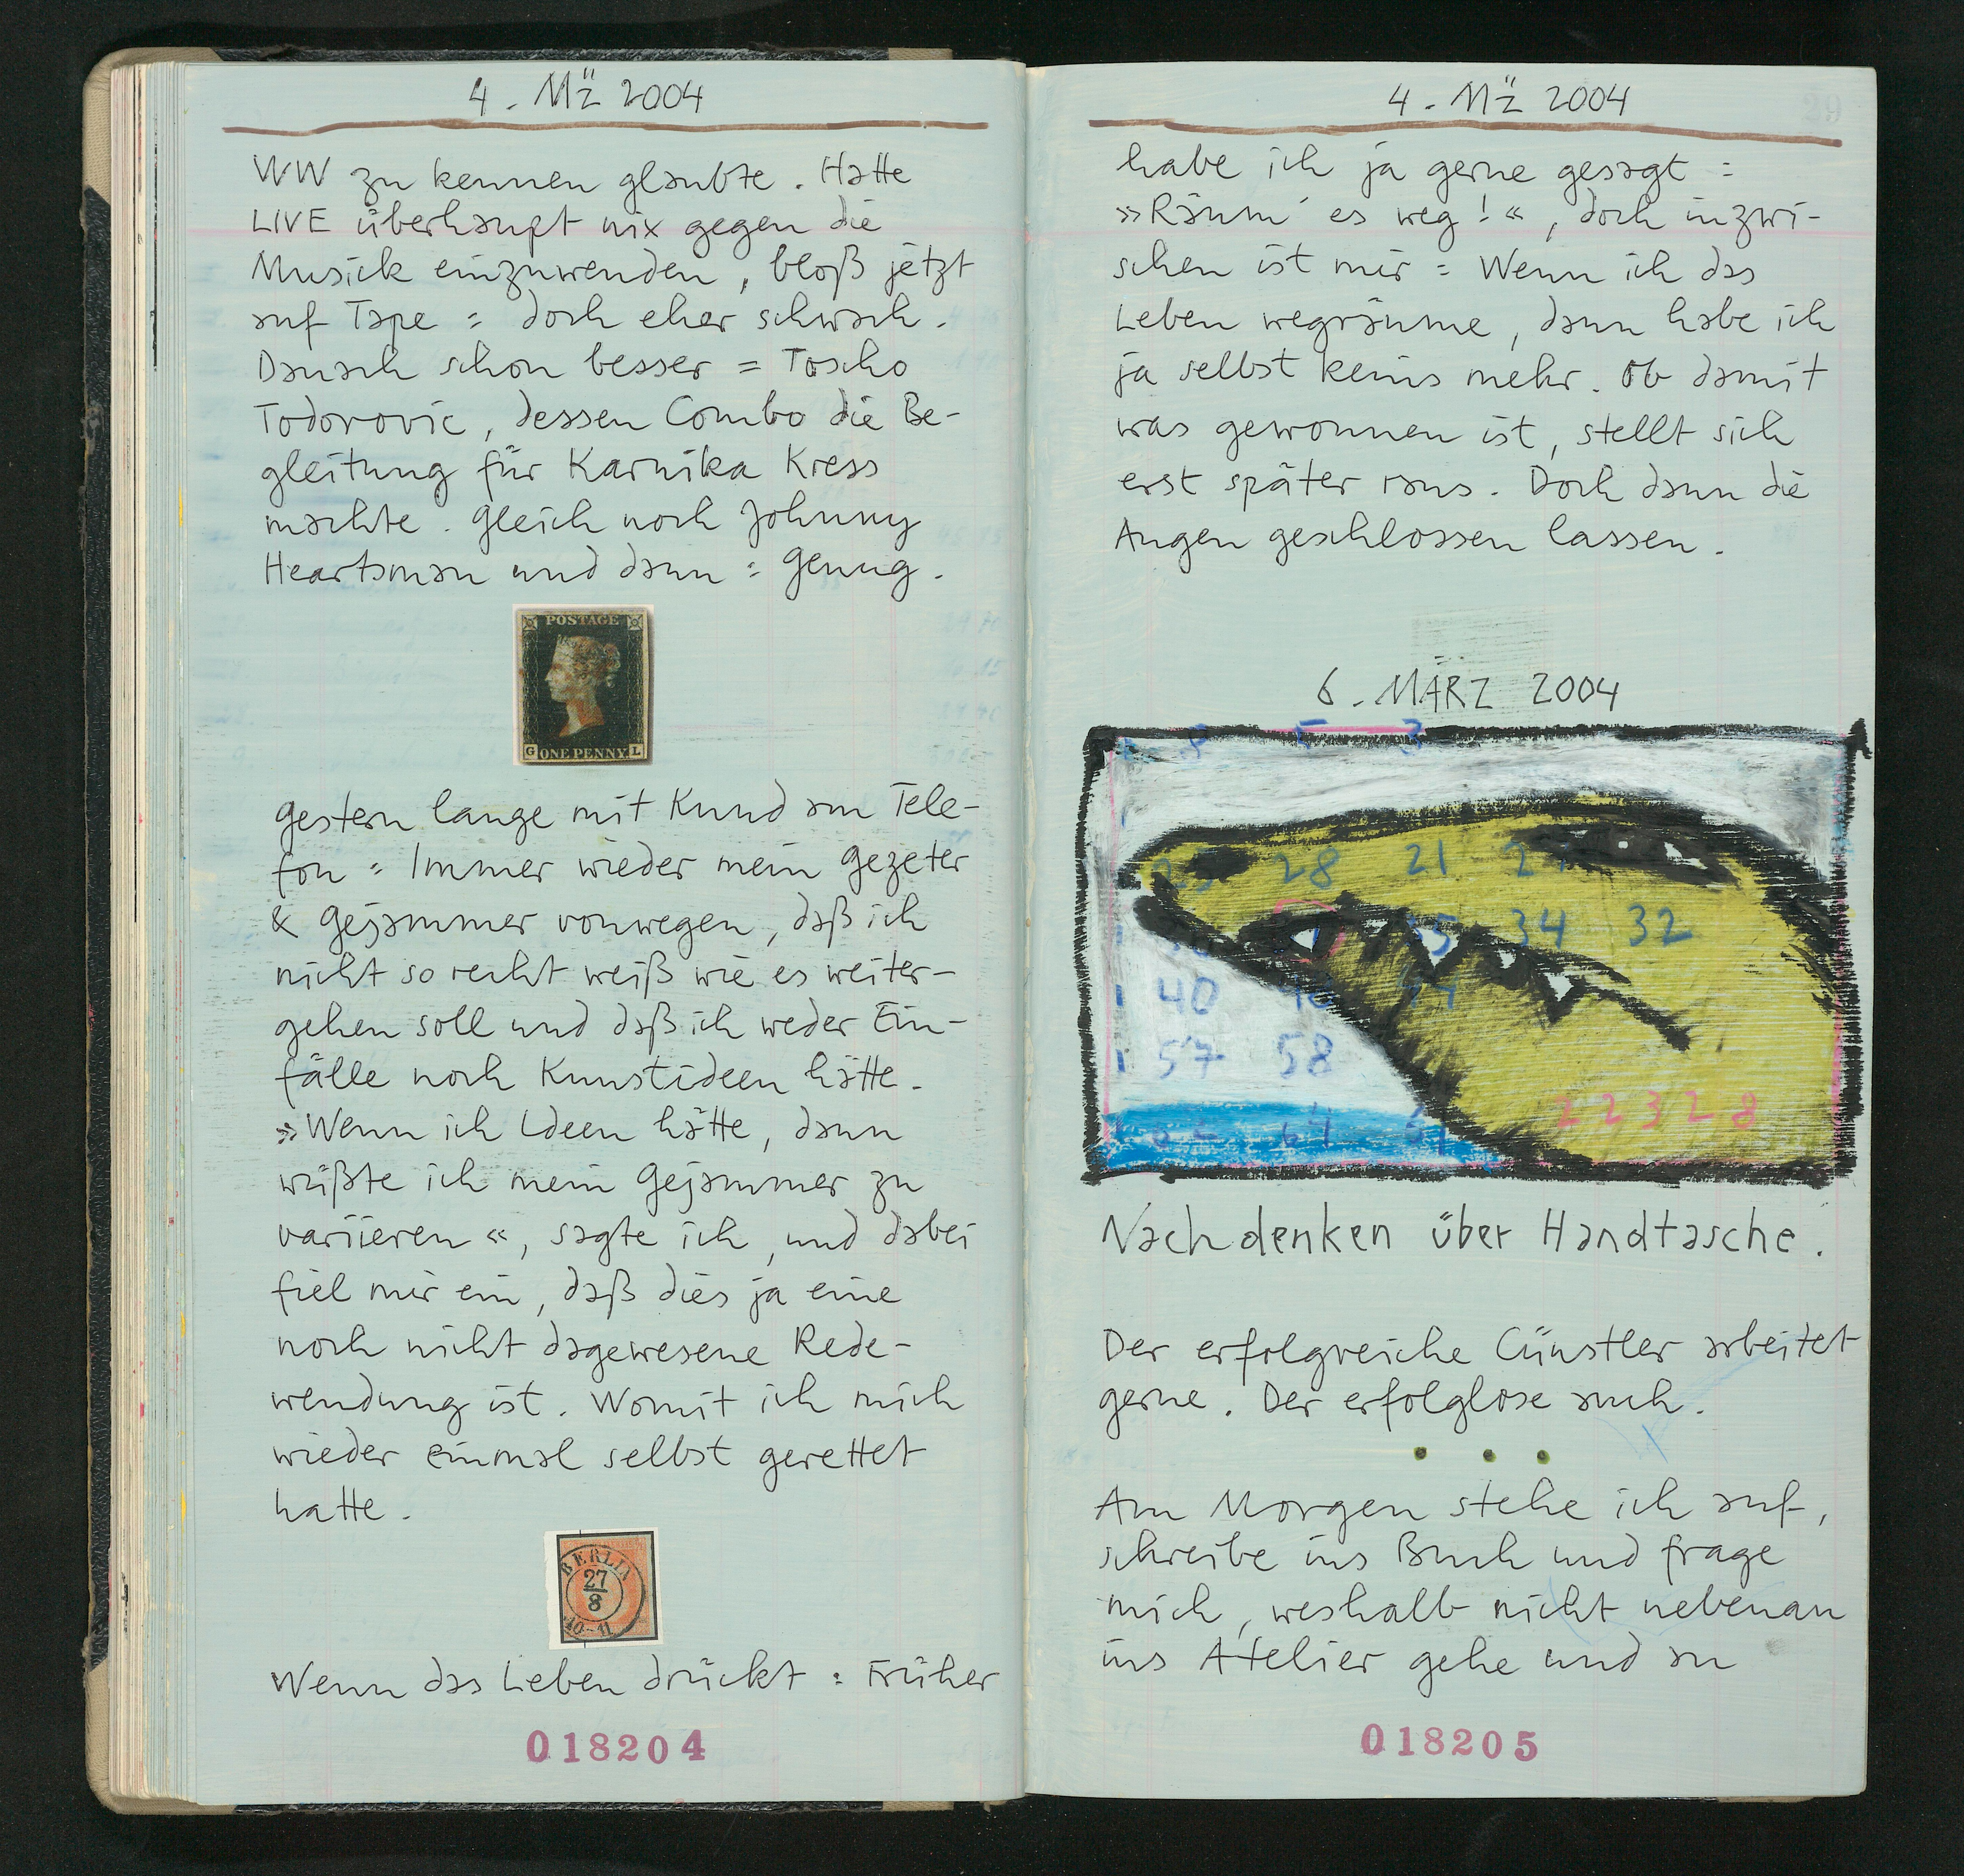 4. Mz̈ 2004
WW zu kennen glaubte. Hatte
LIVE überhaupt nix gegen die
Musick einzuwenden, bloß jetzt
auf Tape = doch eher schwach.
Danach schon besser = Toscho
Todorovic, dessen Combo die Be-
gleitung für Karnika Kress
machte. Gleich noch Johnny
Heartsman und dann : Genug.
POSTAGE
G ONE PENNY. L
Gestern lange mit Knud am Tele-
fon : Immer wieder mein Gezeter
& Gejammer vonwegen, daß ich
nicht so recht weiß wie es weiter-
gehen soll und daß ich weder Ein-
fälle noch Kunstideen hätte.
»Wenn ich Ideen hätte, dann
wüßte ich mein Gejammer zu
variieren«, sagte ich, und dabei
fiel mir ein, daß dies ja eine
noch nicht dagewesene Rede-
wendung ist. Womit ich mich
wieder einmal selbst gerettet
hatte.
BERLIN
27
8
10-11
Wenn das Leben drückt : Früher
018204
4. Mz̈ 2004
29
habe ich ja gerne gesagt :
»Räum' es weg!«, doch inzwi-
schen ist mir = Wenn ich das
Leben wegräume, dann habe ich
ja selbst keins mehr. Ob damit
was gewonnen ist, stellt sich
erst später raus. Doch dann die
Augen geschlossen lassen.
6. MÄRZ 2004
5 3
25 28 21
34 32
40
57 58
64
22328
Nachdenken über Handtasche.
Der erfolgreiche Cünstler arbeitet
gerne. Der erfolglose auch.
Am Morgen stehe ich auf,
schreibe ins Buch und frage
mich, weshalb nicht nebenan
ins Atelier gehe und an
018205